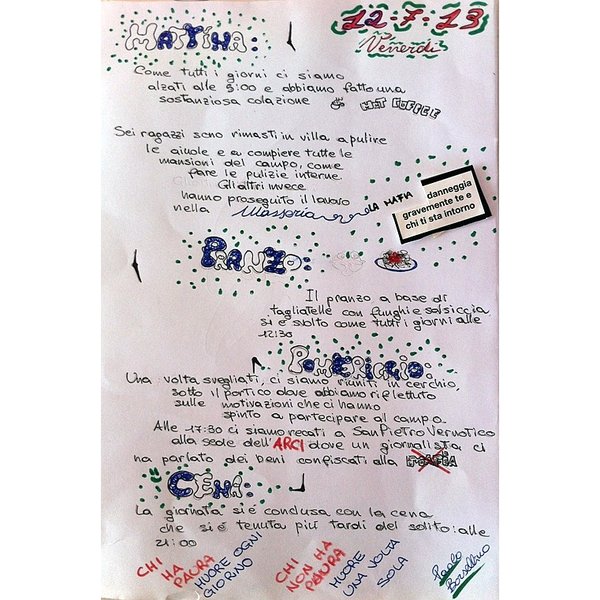 MATTINA:
12-7-13
Venerdì
Come tutti i giorni ci siamo
alzati alle 9:00 e abbiamo fatto una
sostanziosa colazione HOT COFFEE
Sei ragazzi sono rimasti in villa a pulire
le aiuole e a compiere tutte le
mansioni del campo, come
fare le pulizie interne.
Gli altri invece
hanno proseguito il lavoro
nella Masseria
LA MAFIA danneggia
gravemente te e
chi ti sta intorno
PRANZO:
Il pranzo a base di
tagliatelle con funghi e salsiccia
si è svolto come tutti i giorni alle
12:30
POMERIGGIO:
Una volta svegliati, ci siamo riuniti in cerchio,
sotto il portico dove abbiamo riflettuto
sulle motivazioni che ci hanno
spinto a partecipare al campo.
Alle 17:30 ci siamo recati a San Pietro Vernotico
alla sede dell'ARCI dove un giornalista ci
ha parlato dei beni confiscati alla MAFIA
CENA:
La giornata si è conclusa con la cena
che si è tenuta più tardi del solito: alle
21:00
CHI HA PAURA
MUORE OGNI GIORNO
CHI NON HA PAURA
MUORE UNA VOLTA SOLA
Paolo Borsellino